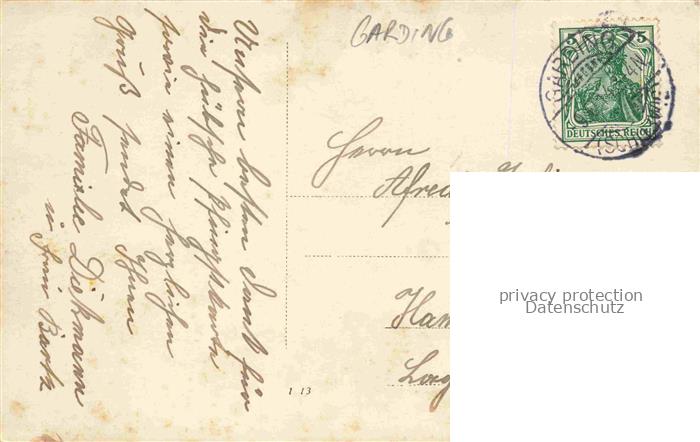 GARDING
5 5
GARDING
DEUTSCHES REICH
Unsern besten Dank für
die hübsche Pfingstkarte
sowie einen herzlichen
Gruß sendet Ihnen
Familie Dickmann
u. Frau Bartz
Herrn
Alfred
Ham
1 13
privacy protection
Datenschutz